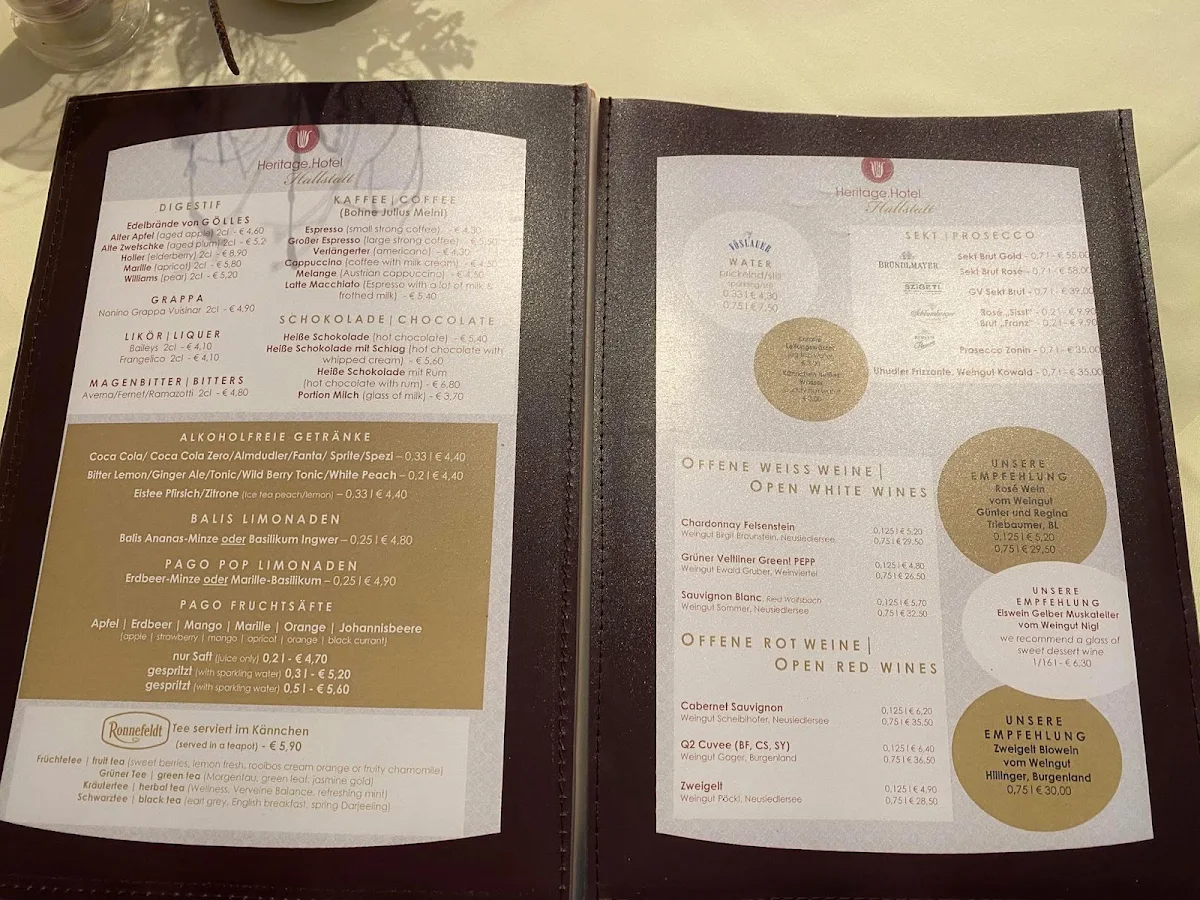 Heritage.Hotel
Hallstatt
DIGESTIF
Edelbrände von GÖLLES
Alter Apfel (aged apple) 2cl - € 4,60
Alte Zwetschke (aged plum) 2cl - € 5,2
Holler (elderberry) 2cl - € 8,90
Marille (apricot) 2cl - € 5,80
Williams (pear) 2cl - € 5,20
GRAPPA
Nonino Grappa Vuisinar 2cl - € 4,90
LIKÖR | LIQUER
Baileys 2cl - € 4,10
Frangelico 2cl - € 4,10
MAGENBITTER | BITTERS
Averna/Fernet/Ramazotti 2cl - € 4,80
KAFFEE | COFFEE
(Bohne Julius Meinl)
Espresso (small strong coffee) - € 4,30
Großer Espresso (large strong coffee)
Verlängerter (americano) - € 4,30
Cappuccino (coffee with milk cream) - € 4,50
Melange (Austrian cappuccino) - € 4,50
Latte Macchiato (Espresso with a lot of milk &
frothed milk) - € 5,40
SCHOKOLADE | CHOCOLATE
Heiße Schokolade (hot chocolate) - € 5,40
Heiße Schokolade mit Schlag (hot chocolate with
whipped cream) - € 5,60
Heiße Schokolade mit Rum
(hot chocolate with rum) - € 6,80
Portion Milch (glass of milk) - € 3,70
ALKOHOLFREIE GETRÄNKE
Coca Cola/ Coca Cola Zero/Almdudler/Fanta/ Sprite/Spezi – 0,33 l € 4,40
Bitter Lemon/Ginger Ale/Tonic/Wild Berry Tonic/White Peach – 0,2 l € 4,40
Eistee Pfirsich/Zitrone (Ice tea peach/lemon) – 0,33 l € 4,40
BALIS LIMONADEN
Balis Ananas-Minze oder Basilikum Ingwer – 0,25 l € 4,80
PAGO POP LIMONADEN
Erdbeer-Minze oder Marille-Basilikum – 0,25 l € 4,90
PAGO FRUCHTSÄFTE
Apfel | Erdbeer | Mango | Marille | Orange | Johannisbeere
(apple | strawberry | mango | apricot | orange | black currant)
nur Saft (juice only) 0,2 l - € 4,70
gespritzt (with sparkling water) 0,3 l - € 5,20
gespritzt (with sparkling water) 0,5 l - € 5,60
Ronnefeldt
Tee serviert im Kännchen
(served in a teapot) - € 5,90
Früchtetee | fruit tea (sweet berries, lemon fresh, rooibos cream orange or fruity chamomile)
Grüner Tee | green tea (Morgentau, green leaf, jasmine gold)
Kräutertee | herbal tea (Wellness, Verveine Balance, refreshing mint)
Schwarztee | black tea (earl grey, English breakfast, spring Darjeeling)
Heritage.Hotel
Hallstatt
VÖSLAUER
WATER
prickelnd/still
0,33 l € 4,30
0,75 l € 7,50
SEKT | PROSECCO
BRÜNDLMAYER
Sekt Brut Gold - 0,7 l - € 55,00
Sekt Brut Rosé - 0,7 l - € 58,00
SZIGETI
GV Sekt Brut - 0,7 l - € 39,00
Schlumberger
Rosé „Sissi“ - 0,2 l - € 9,90
Brut „Franz“ - 0,2 l - € 9,90
Prosecco Zonin - 0,7 l - € 35,00
Uhudler Frizzante, Weingut Kowald - 0,7 l - € 35,00
OFFENE WEISS WEINE |
OPEN WHITE WINES
Chardonnay Felsenstein
Weingut Birgit Braunstein, Neusiedlersee
0,125 l € 5,20
0,75 l € 29,50
Grüner Veltliner Green! PEPP
Weingut Ewald Gruber, Weinviertel
0,125 l € 4,80
0,75 l € 26,50
Sauvignon Blanc, Ried Wolfsbach
Weingut Sommer, Neusiedlersee
0,125 l € 5,70
0,75 l € 32,50
OFFENE ROT WEINE |
OPEN RED WINES
Cabernet Sauvignon
Weingut Scheiblhofer, Neusiedlersee
0,125 l € 6,20
0,75 l € 35,50
Q2 Cuvee (BF, CS, SY)
Weingut Gager, Burgenland
0,125 l € 6,40
0,75 l € 36,50
Zweigelt
Weingut Pöckl, Neusiedlersee
0,125 l € 4,90
0,75 l € 28,50
UNSERE
EMPFEHLUNG
Rosé Wein
vom Weingut
Günter und Regina
Triebaumer, BL
0,125 l € 5,20
0,75 l € 29,50
UNSERE
EMPFEHLUNG
Eiswein Gelber Muskateller
vom Weingut Nigl
we recommend a glass of
sweet dessert wine
1/16 l - € 6,30
UNSERE
EMPFEHLUNG
Zweigelt Biowein
vom Weingut
Hillinger, Burgenland
0,75 l € 30,00